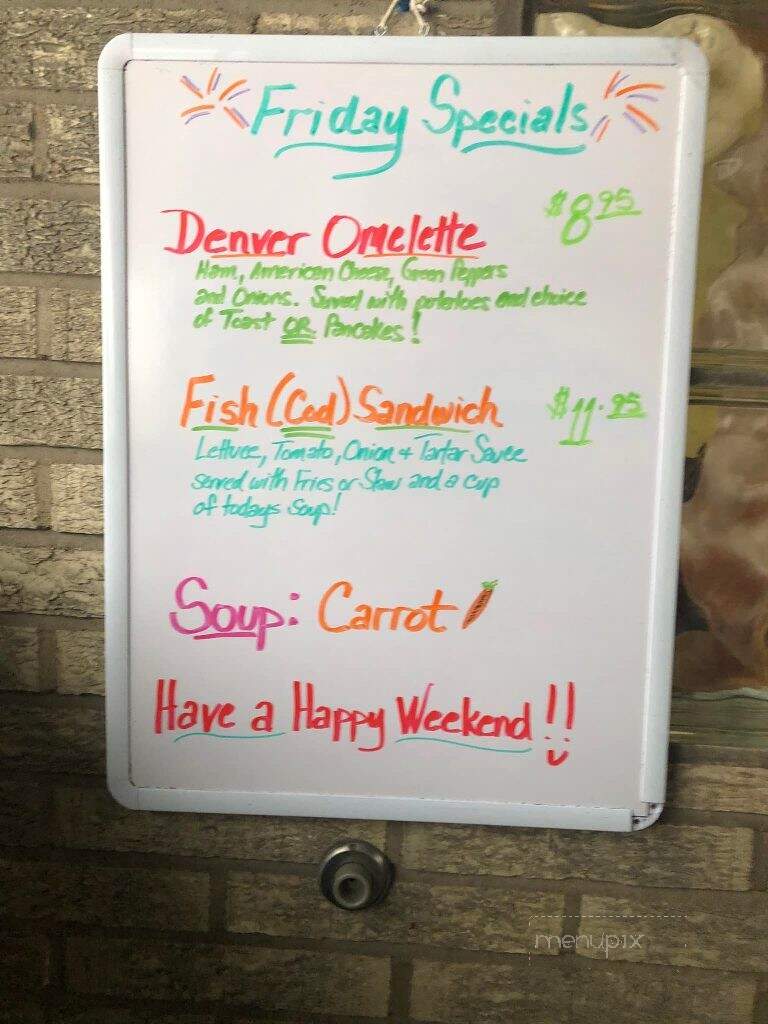 Friday Specials
Denver Omelette $8.95
Ham, American Cheese, Green Peppers
and Onions. Served with potatoes and choice
of Toast OR Pancakes!
Fish (Cod) Sandwich $11.95
Lettuce, Tomato, Onion + Tartar Sauce
served with Fries or Slaw and a cup
of todays Soup!
Soup: Carrot
Have a Happy Weekend!!
menupix